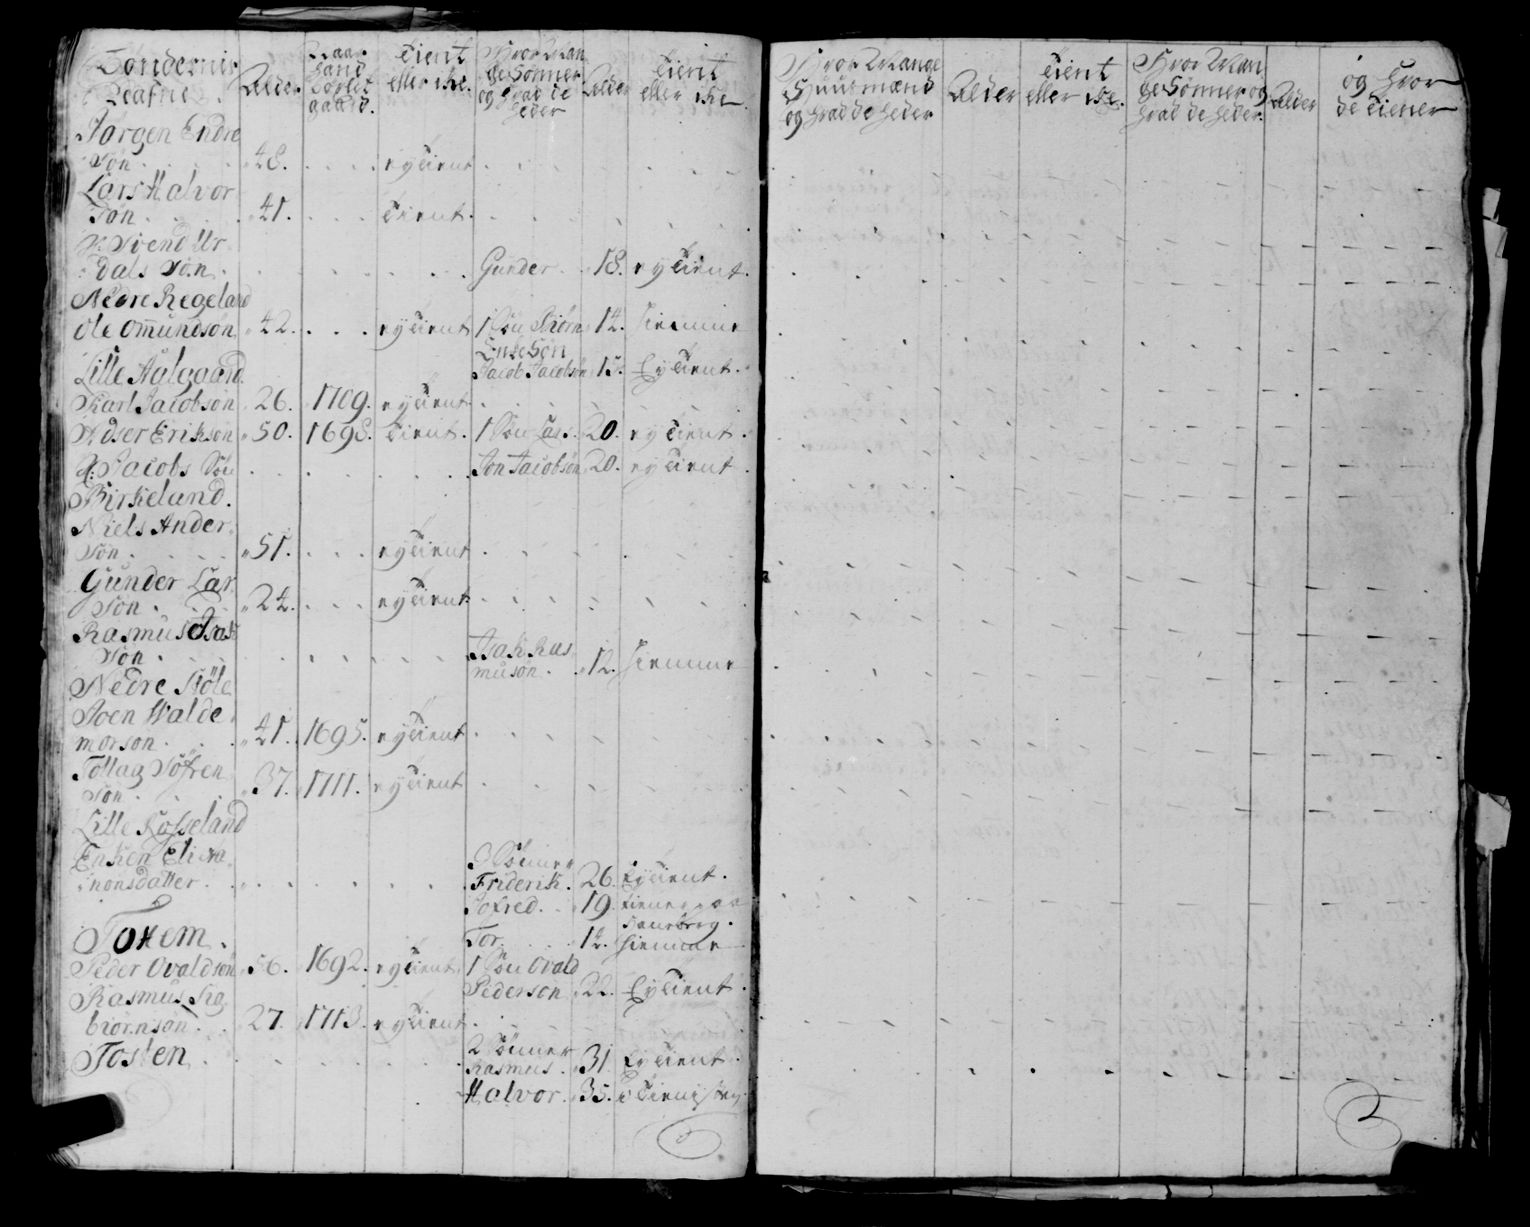 Bøndernis Alder. Naar hand Boxlet gaard. Tient eller ike. Hvor Man ge Sønner og hvad de heder Alder Tient eller ike
Jørgen Endre
Søn. 48. ey Tient
Lars Halvor
Søn. 41. Tient.
Svend Ur
dals Søn. Gunder. 18. ey Tient.
Nedre Regeland
Ole Omundsøn 42. ey Tient 1 Søn Biørn 14. hiemme
Lille Aalgaard. Jacob Jacobsøn 15. Ey Tient.
Karl Jacobsøn 26. 1709. ey Tient
Adser Eriksøn 50. 1698. Tient. 1 Søn Lars. 20. ey Tient.
Jacobs Søn Jon Jacobsøn 20. ey Tient.
Birkeland.
Niels Ander
Søn. 51. ey Tient
Gunder Lar
Søn. 24. ey Tient
Rasmus Isak
Søn. Isak Ras
musøn. 12. hiemme
Nedre Støle
Joen Walde
morson. 41. 1695. ey Tient
Tollag Søfren
Søn. 37. 1711. ey Tient
Lille Kosseland
Enken
3 Sønner
Friderik. 26. Ey Tient.
Jofred. 19. tiener paa
Tor. 14. hiemme
Tokem.
Peder Ovaldsøn 56. 1692. ey Tient. 1 Søn Ovald
Pedersøn 22. Ey Tient.
Rasmus
biørnsøn. 27. 1713. ey Tient.
Tosten 2 Sønner
Rasmus. 31. Ey Tient.
Halvor. 35. i Tienisten.
Hvor Mange Huusmænd og hvad de heder Alder Tient eller ike. Hvor Man ge Sønner og hvad de heder. Alder og hvor de Tiener